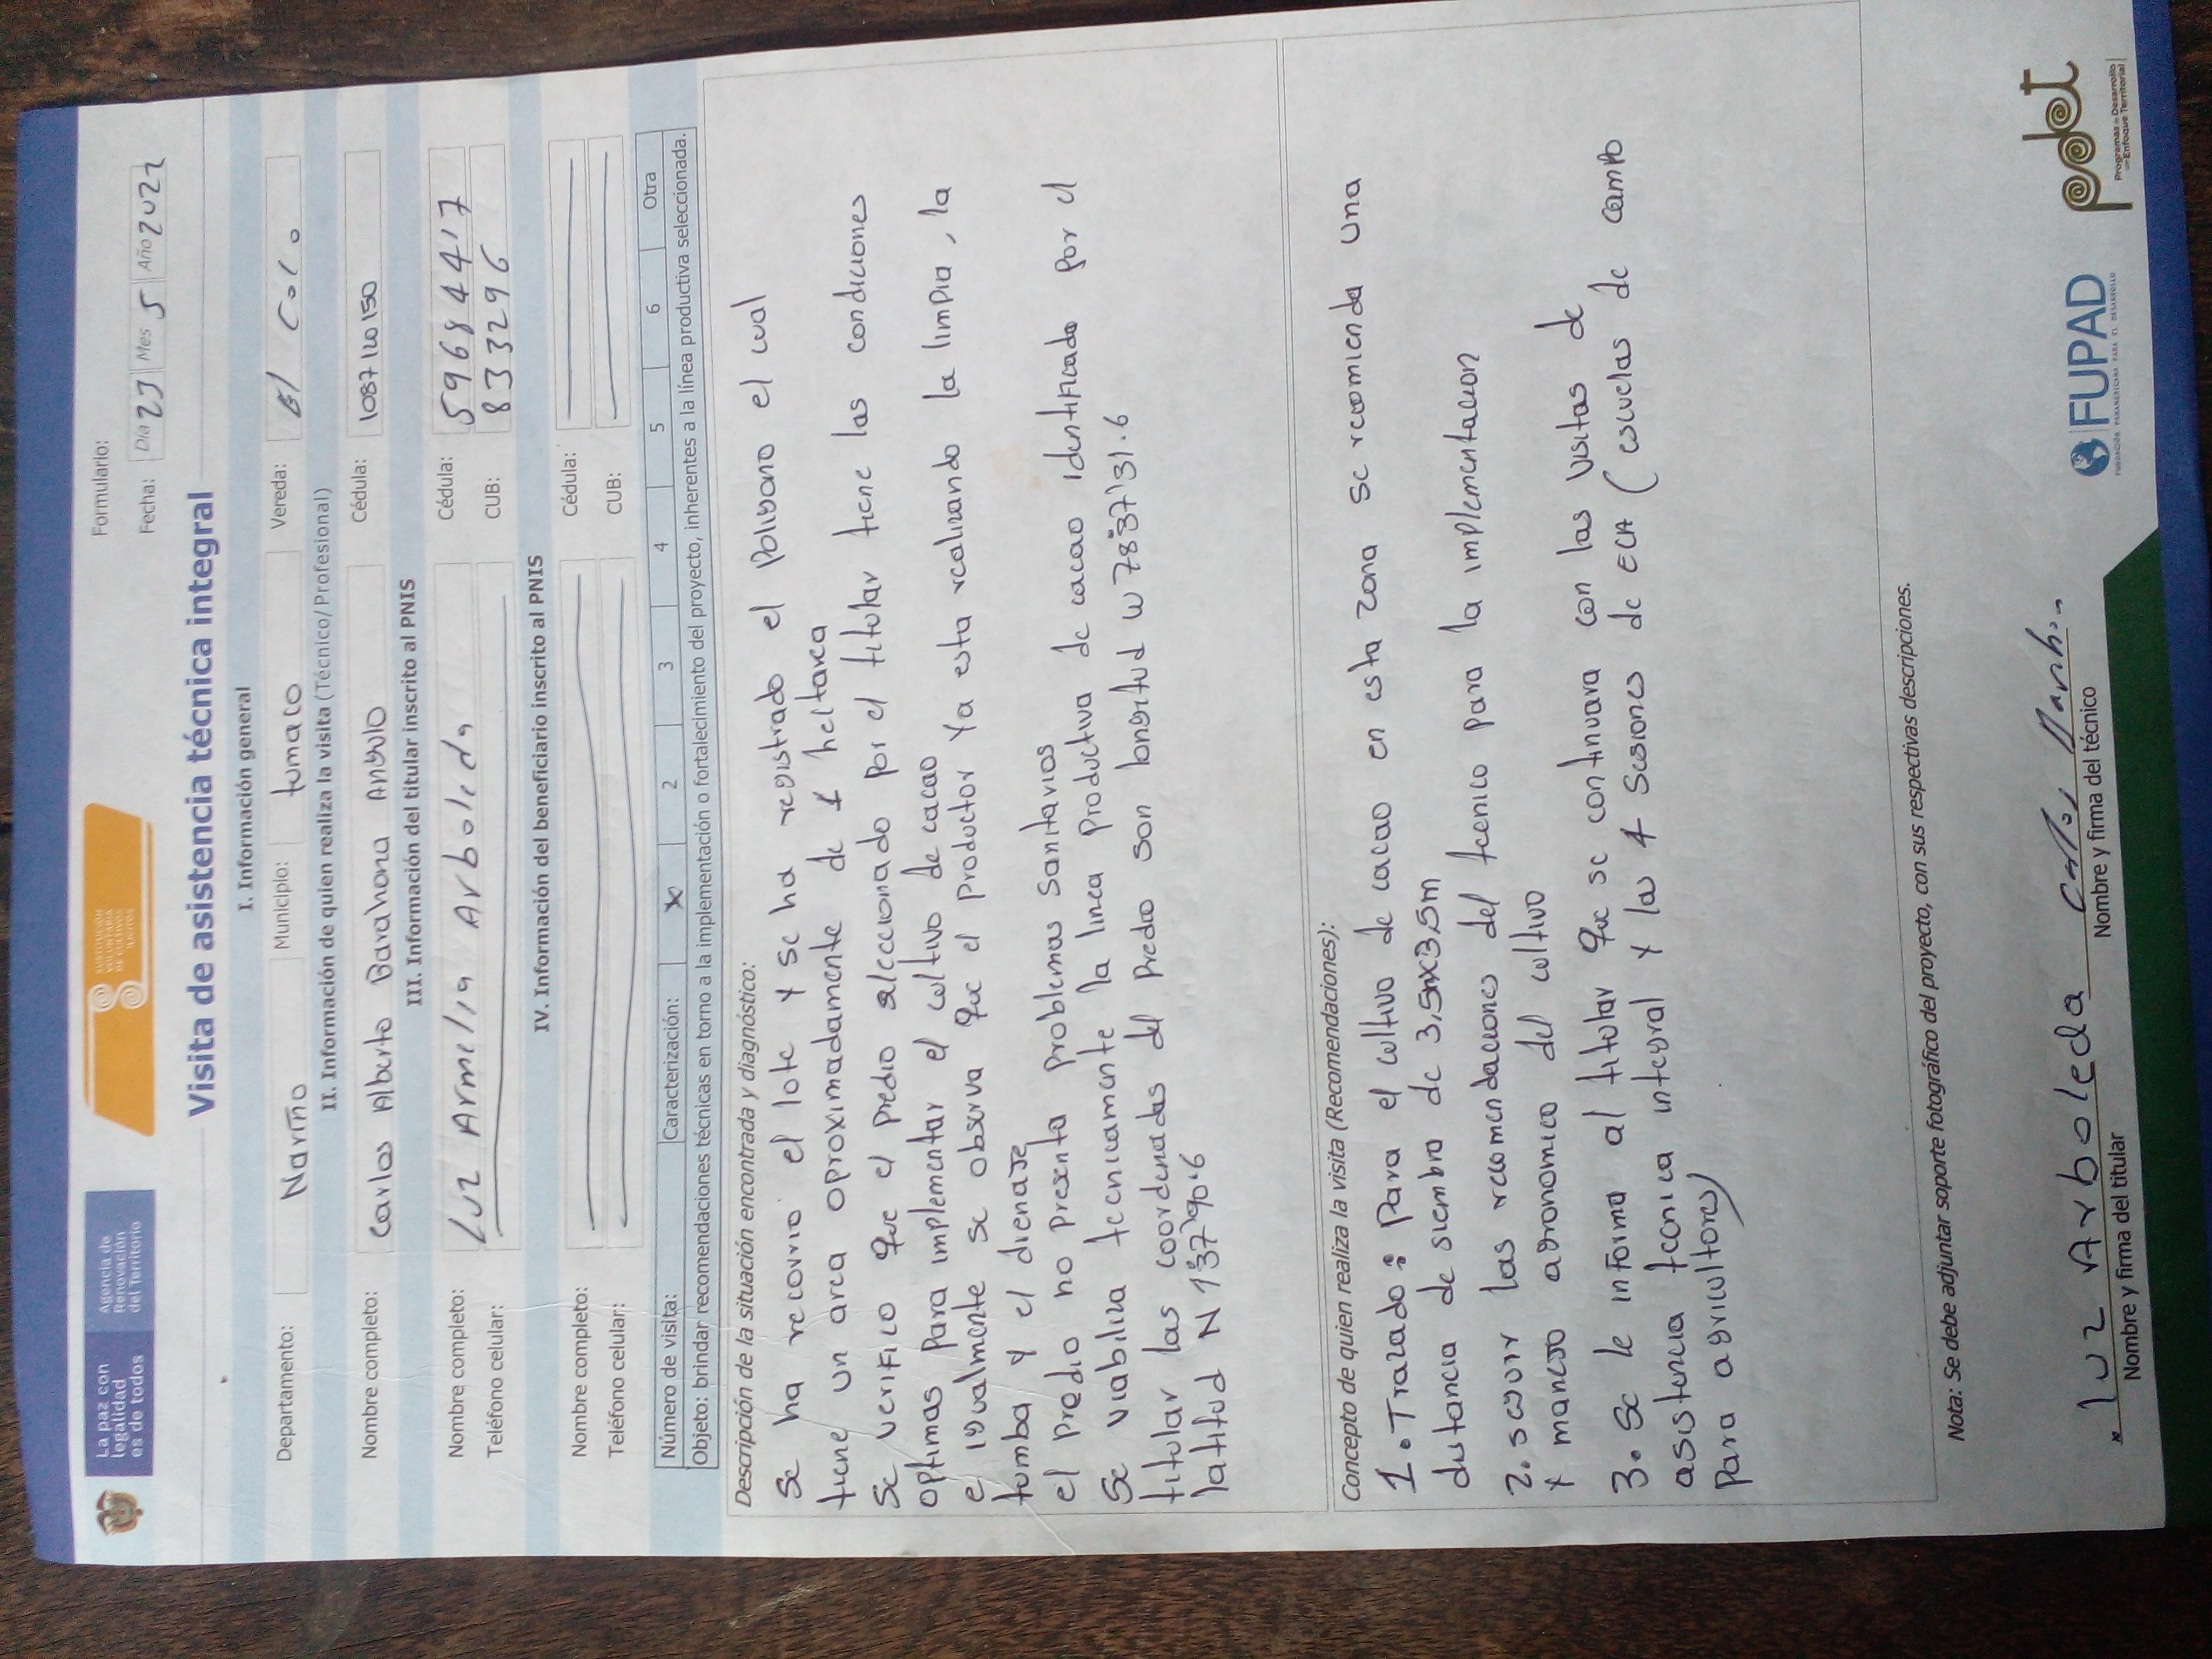 La paz con
legalidad
es de todos
Agencia de
Renovación
del Territorio
SUSTITUCIÓN
VOLUNTARIA
DE CULTIVOS
ILÍCITOS
Formulario:
Fecha: Día 23 Mes 5 Año 2022
Visita de asistencia técnica integral
I. Información general
Departamento: Nariño Municipio: tumaco Vereda: El Coco
II. Información de quien realiza la visita (Técnico/Profesional)
Nombre completo: Carlos Alberto Barahona Angulo Cédula: 1087120150
III. Información del titular inscrito al PNIS
Nombre completo: Luz Armelia Arboleda Cédula: 59684417
Teléfono celular: CUB: 8332296
IV. Información del beneficiario inscrito al PNIS
Nombre completo: Cédula:
Teléfono celular: CUB:
Número de visita: Caracterización: X 2 3 4 5 6 Otra
Objeto: brindar recomendaciones técnicas en torno a la implementación o fortalecimiento del proyecto, inherentes a la línea productiva seleccionada.
Descripción de la situación encontrada y diagnóstico:
Se ha recorrio el lote y se ha registrado el poligono el cual
tiene un area aproximadamente de 1 heltarea
Se verifico que el predio seleccionado por el titular tiene las condiciones
optimas para implementar el cultivo de cacao
e igualmente se observa que el productor ya esta realizando la limpia, la
tumba y el drenaje
el predio no presenta problemas sanitarios
Se viabiliza tecnicamente la linea productiva de cacao identificado por el
titular las coordenadas del predio son longitud W 78°37'31.6
latitud N 1°37'290.6
Concepto de quien realiza la visita (Recomendaciones):
1. Trazado: Para el cultivo de cacao en esta zona se recomienda una
distancia de siembra de 3,5mx3,5m
2. seguir las recomendaciones del tecnico para la implementacion
y manejo agronomico del cultivo
3. Se le informa al titular que se continuara con las visitas de
asistencia tecnica integral y las 4 sesiones de ECA (escuelas de campo
para agricultores)
Nota: Se debe adjuntar soporte fotográfico del proyecto, con sus respectivas descripciones.
luz Arboleda
Nombre y firma del titular
Nombre y firma del técnico
FUPAD
FUNDACIÓN PANAMERICANA PARA EL DESARROLLO
pdet
Programas de Desarrollo
con Enfoque Territorial